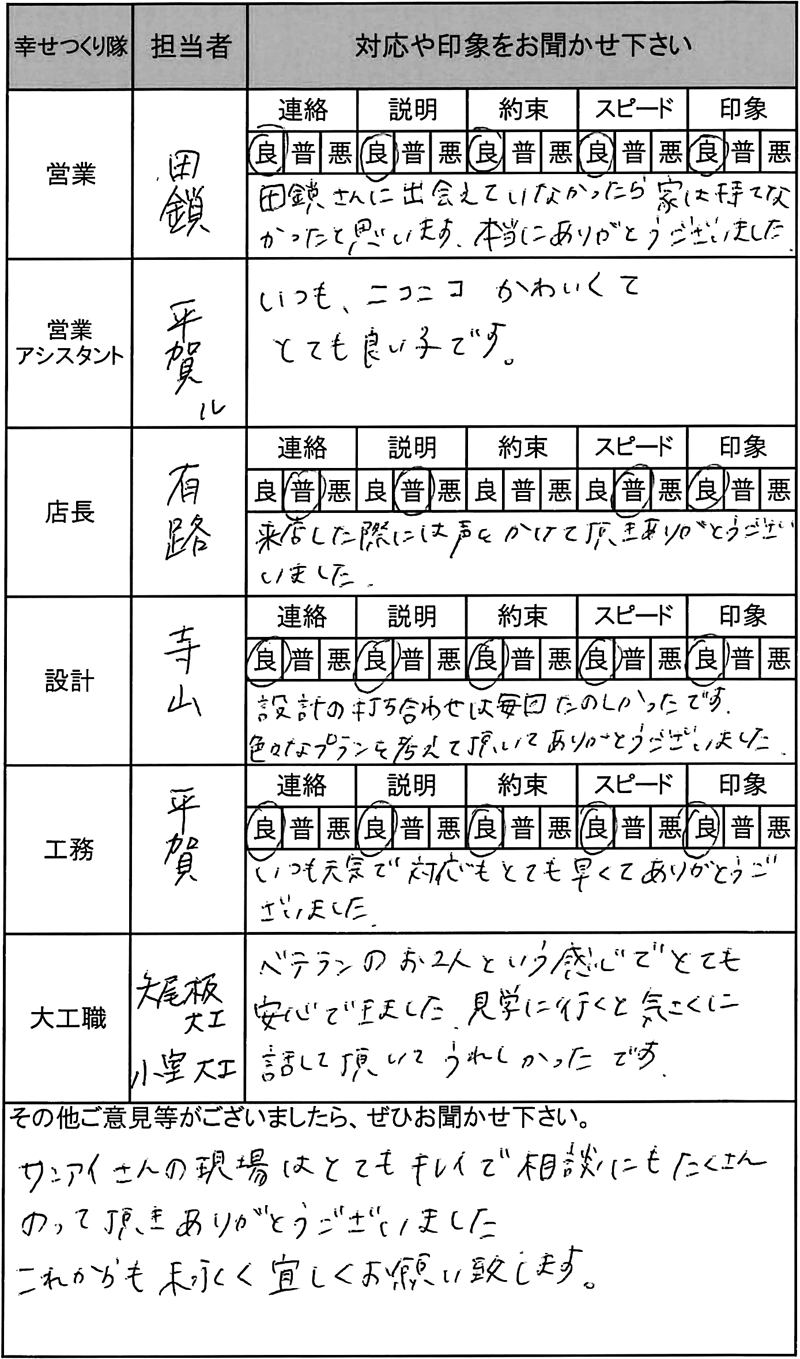 幸せつくり隊 担当者 対応や印象をお聞かせ下さい
営業 田鎖
連絡 説明 約束 スピード 印象
良 普 悪 良 普 悪 良 普 悪 良 普 悪 良 普 悪
田鎖さんに出会えていなかったら家は持てな
かったと思います。本当にありがとうございました。
営業
アシスタント
平賀ル
いつも、ニコニコ かわいくて
とても良い子です。
店長 有路
連絡 説明 約束 スピード 印象
良 普 悪 良 普 悪 良 普 悪 良 普 悪 良 普 悪
来店した際には声をかけて頂きありがとうござい
いました。
設計 寺山
連絡 説明 約束 スピード 印象
良 普 悪 良 普 悪 良 普 悪 良 普 悪 良 普 悪
設計の打ち合わせは毎回たのしかったです。
色々なプランを考えて頂いてありがとうございました。
工務 平賀
連絡 説明 約束 スピード 印象
良 普 悪 良 普 悪 良 普 悪 良 普 悪 良 普 悪
いつも元気で対応もとても早くてありがとうご
ざいました。
大工職
矢尾板
大工
小室大工
ベテランのお2人という感じでとても
安心できました。見学に行くと気さくに
話して頂いてうれしかったです。
その他ご意見等がございましたら、ぜひお聞かせ下さい。
サンアイさんの現場はとてもキレイで相談にもたくさん
のって頂きありがとうございました
これからも末永く宜しくお願い致します。